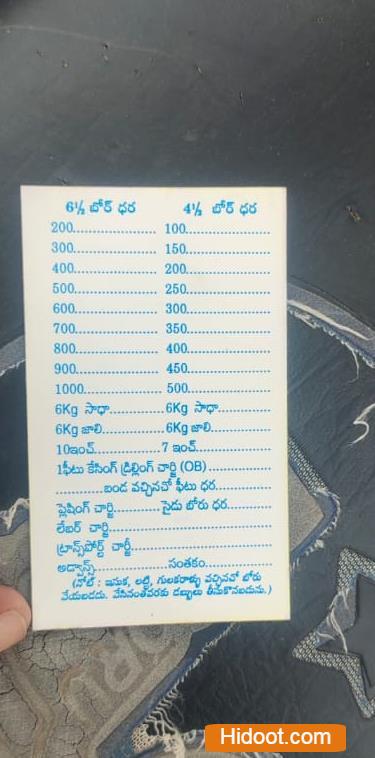 6½ బోర్ ధర 4½ బోర్ ధర
200..................... 100...........................
300..................... 150...........................
400..................... 200...........................
500..................... 250...........................
600..................... 300...........................
700..................... 350...........................
800..................... 400...........................
900..................... 450...........................
1000................... 500...........................
6Kg సాధా..............6Kg సాధా..............
6Kg జాలి...............6Kg జాలి...............
10ఇంచ్.................7 ఇంచ్....................
1ఫీటు కేసింగ్ డ్రిల్లింగ్ చార్జి (OB)................
............బండ వచ్చినచో ఫీటు ధర..............
ఫ్లెషింగ్ చార్జి............సైడు బోరు ధర...........
లేబర్ చార్జి..........................................
ట్రాన్స్‌పోర్ట్ చార్జీ...................................
అడ్వాన్స్....................సంతకం.................
(నోట్ : ఇసుక, లట్టి, గులకరాళ్ళు వచ్చినచో బోరు
వేయబడదు. వేసినంతవరకు డబ్బులు తీసుకొనబడును.)
Hidoot.com